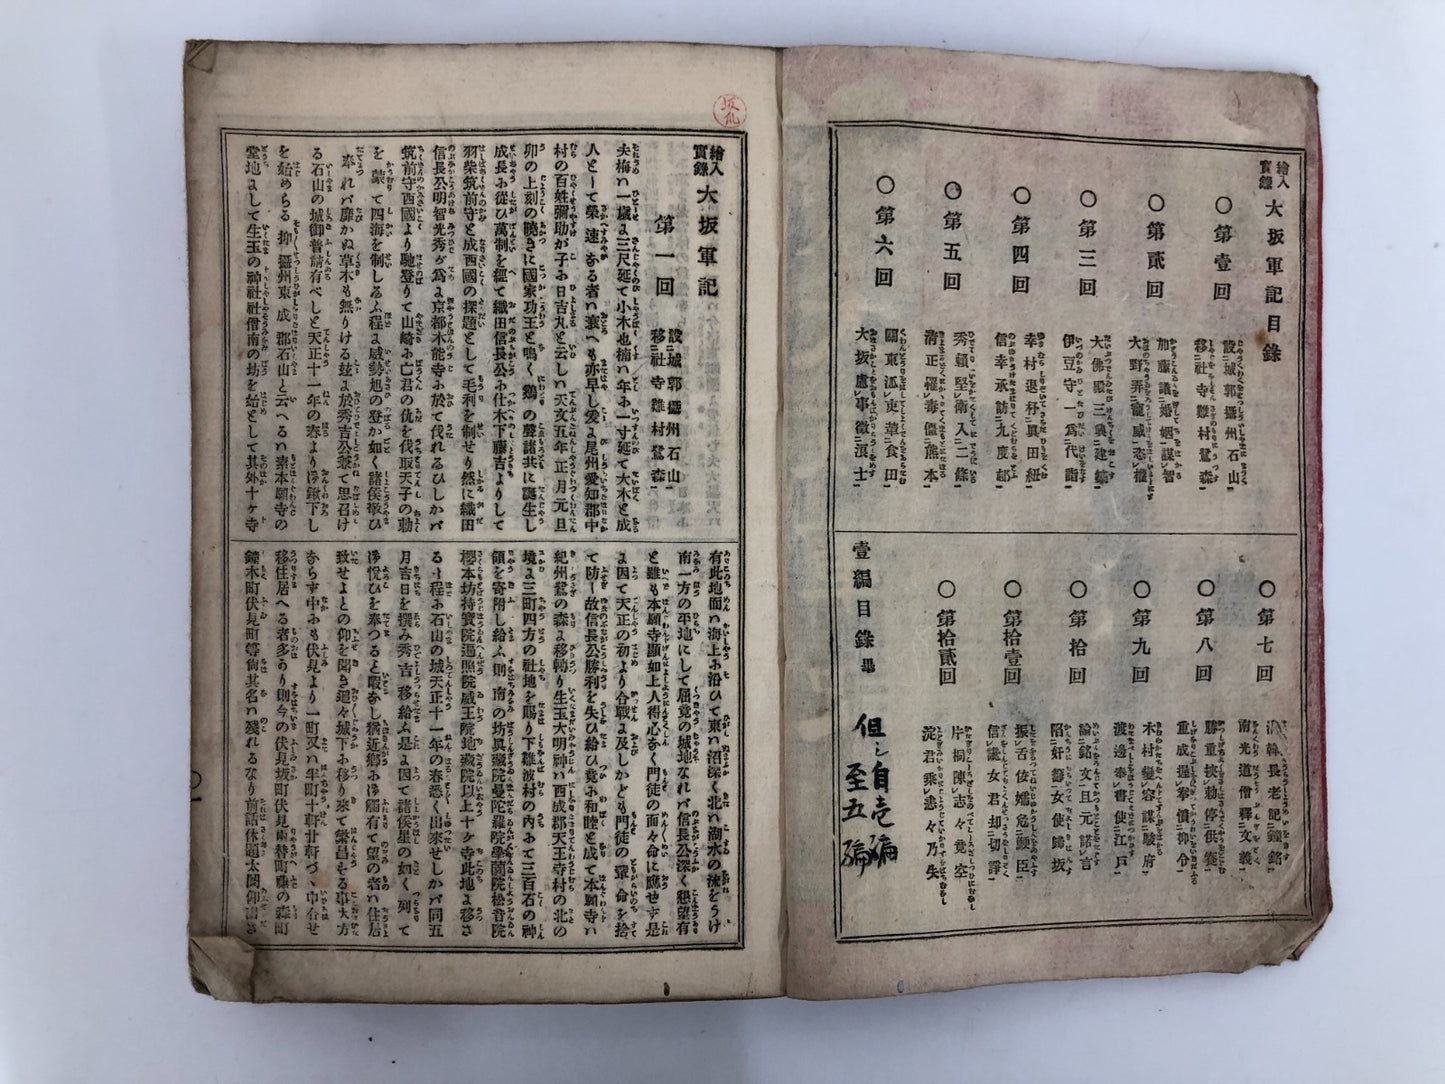 繪入實錄 大坂軍記目錄
○第壹回 設城郭攝州石山 移社寺難村鷺森
○第貳回 加藤議婚姻謀智 大野弄寵威恣權
○第三回 大佛殿三興建築 伊豆守一爲代詣
○第四回 幸村退杯眞田紐 信幸承訪九度郞
○第五回 秀賴堅衛入二條 淸正罹毒僵熊本
○第六回 關東派吏華食田 大坂慮事徵浪士
○第七回 淸韓長老記鐘銘 南光道僧釋文義
○第八回 勝重挾勅停供養 重成握拳憤抑令
○第九回 木村變容謀駿府 渡邊奉書使江戶
○第拾回 論銘文且元諾言 陷奸籌女使歸坂
○第拾壹回 振舌佞嬬危鯁臣 信讒女君却切諍
○第拾貳回 片桐陳志々竟空 淀君乘恚々乃失
壹編目錄畢
但シ自壱編
至五編
坂凢
繪入實錄 大坂軍記
第一回 設城郭攝州石山 移社寺難村鷺森
夫梅ハ一歲に三尺延て小木也楠ハ年に一寸延て大木と成
人として榮速なる者ハ衰へも亦早し爰に尾州愛知郡中
村の百姓彌助が子に日吉丸と云しハ天文五年正月元旦
卯の上刻の曉きに國家功王と鳴く鷄の聲諸共に誕生し
成長に從ひ萬制を經て織田信長公に仕木下藤吉よりして
羽柴筑前守と成西國の探題として毛利を制せり然に織田
信長公明智光秀が爲に京都本能寺に於て伐れるひしかバ
筑前守西國より馳登りて山崎に亡君の仇を伐取天子の勅
を蒙て四海を制しゐふ程に威勢旭の登か如く諸侯敬ひ
奉れバ靡かぬ草木も無りける玆に於秀吉公兼て思召け
る石山の城御普請有べしと天正十一年の春より御鍬下し
を始めらる抑攝州東成郡石山と云へるハ素本願寺の
堂地にして生玉の神社社僧南の坊を始として其外十ヶ寺
有此地面ハ海上に沿ひて東ハ沼深く北ハ湖水の流をうけ
南一方の平地にして屈竟の城地なれバ信長公深く懇望有
と雖も本願寺顯如上人得心なく門徒の面々命に應せず是
に因て天正の初より合戰に及しかども門徒の輩命を捨
て防一故信長公勝利を失ひ給ひ竟に和睦と成て本願寺ハ
紀州鷺の森に移轉り生玉大明神ハ西成郡天王寺村の北の
境に三町四方の社地を賜り下難波村の內にて三百石の神
領を寄附し給ふ則ち南の坊眞藏院曼陀羅院學南院松音院
櫻本坊持寶院遍照院威王院地藏院以上十ヶ寺此地に移さ
るゝ程に石山の城天正十一年の春悉く出來せしかバ同五
月吉日を撰み秀吉移給ふ是に因て諸侯星の如く列て
御悅ひを奉つると暇なし猶近鄕に御觸有て望の者ハ住居
致せよとの仰を聞き廻々城下に移り來て繁昌せる事大方
ならず中にも伏見より一町又ハ半町十軒廿軒づゝ申合せ
移住居へる者多かり則今の伏見坂町伏見兩替町藤の森町
鐘木町伏見町等尙其名ハ殘れるなり前話休題太閤仰